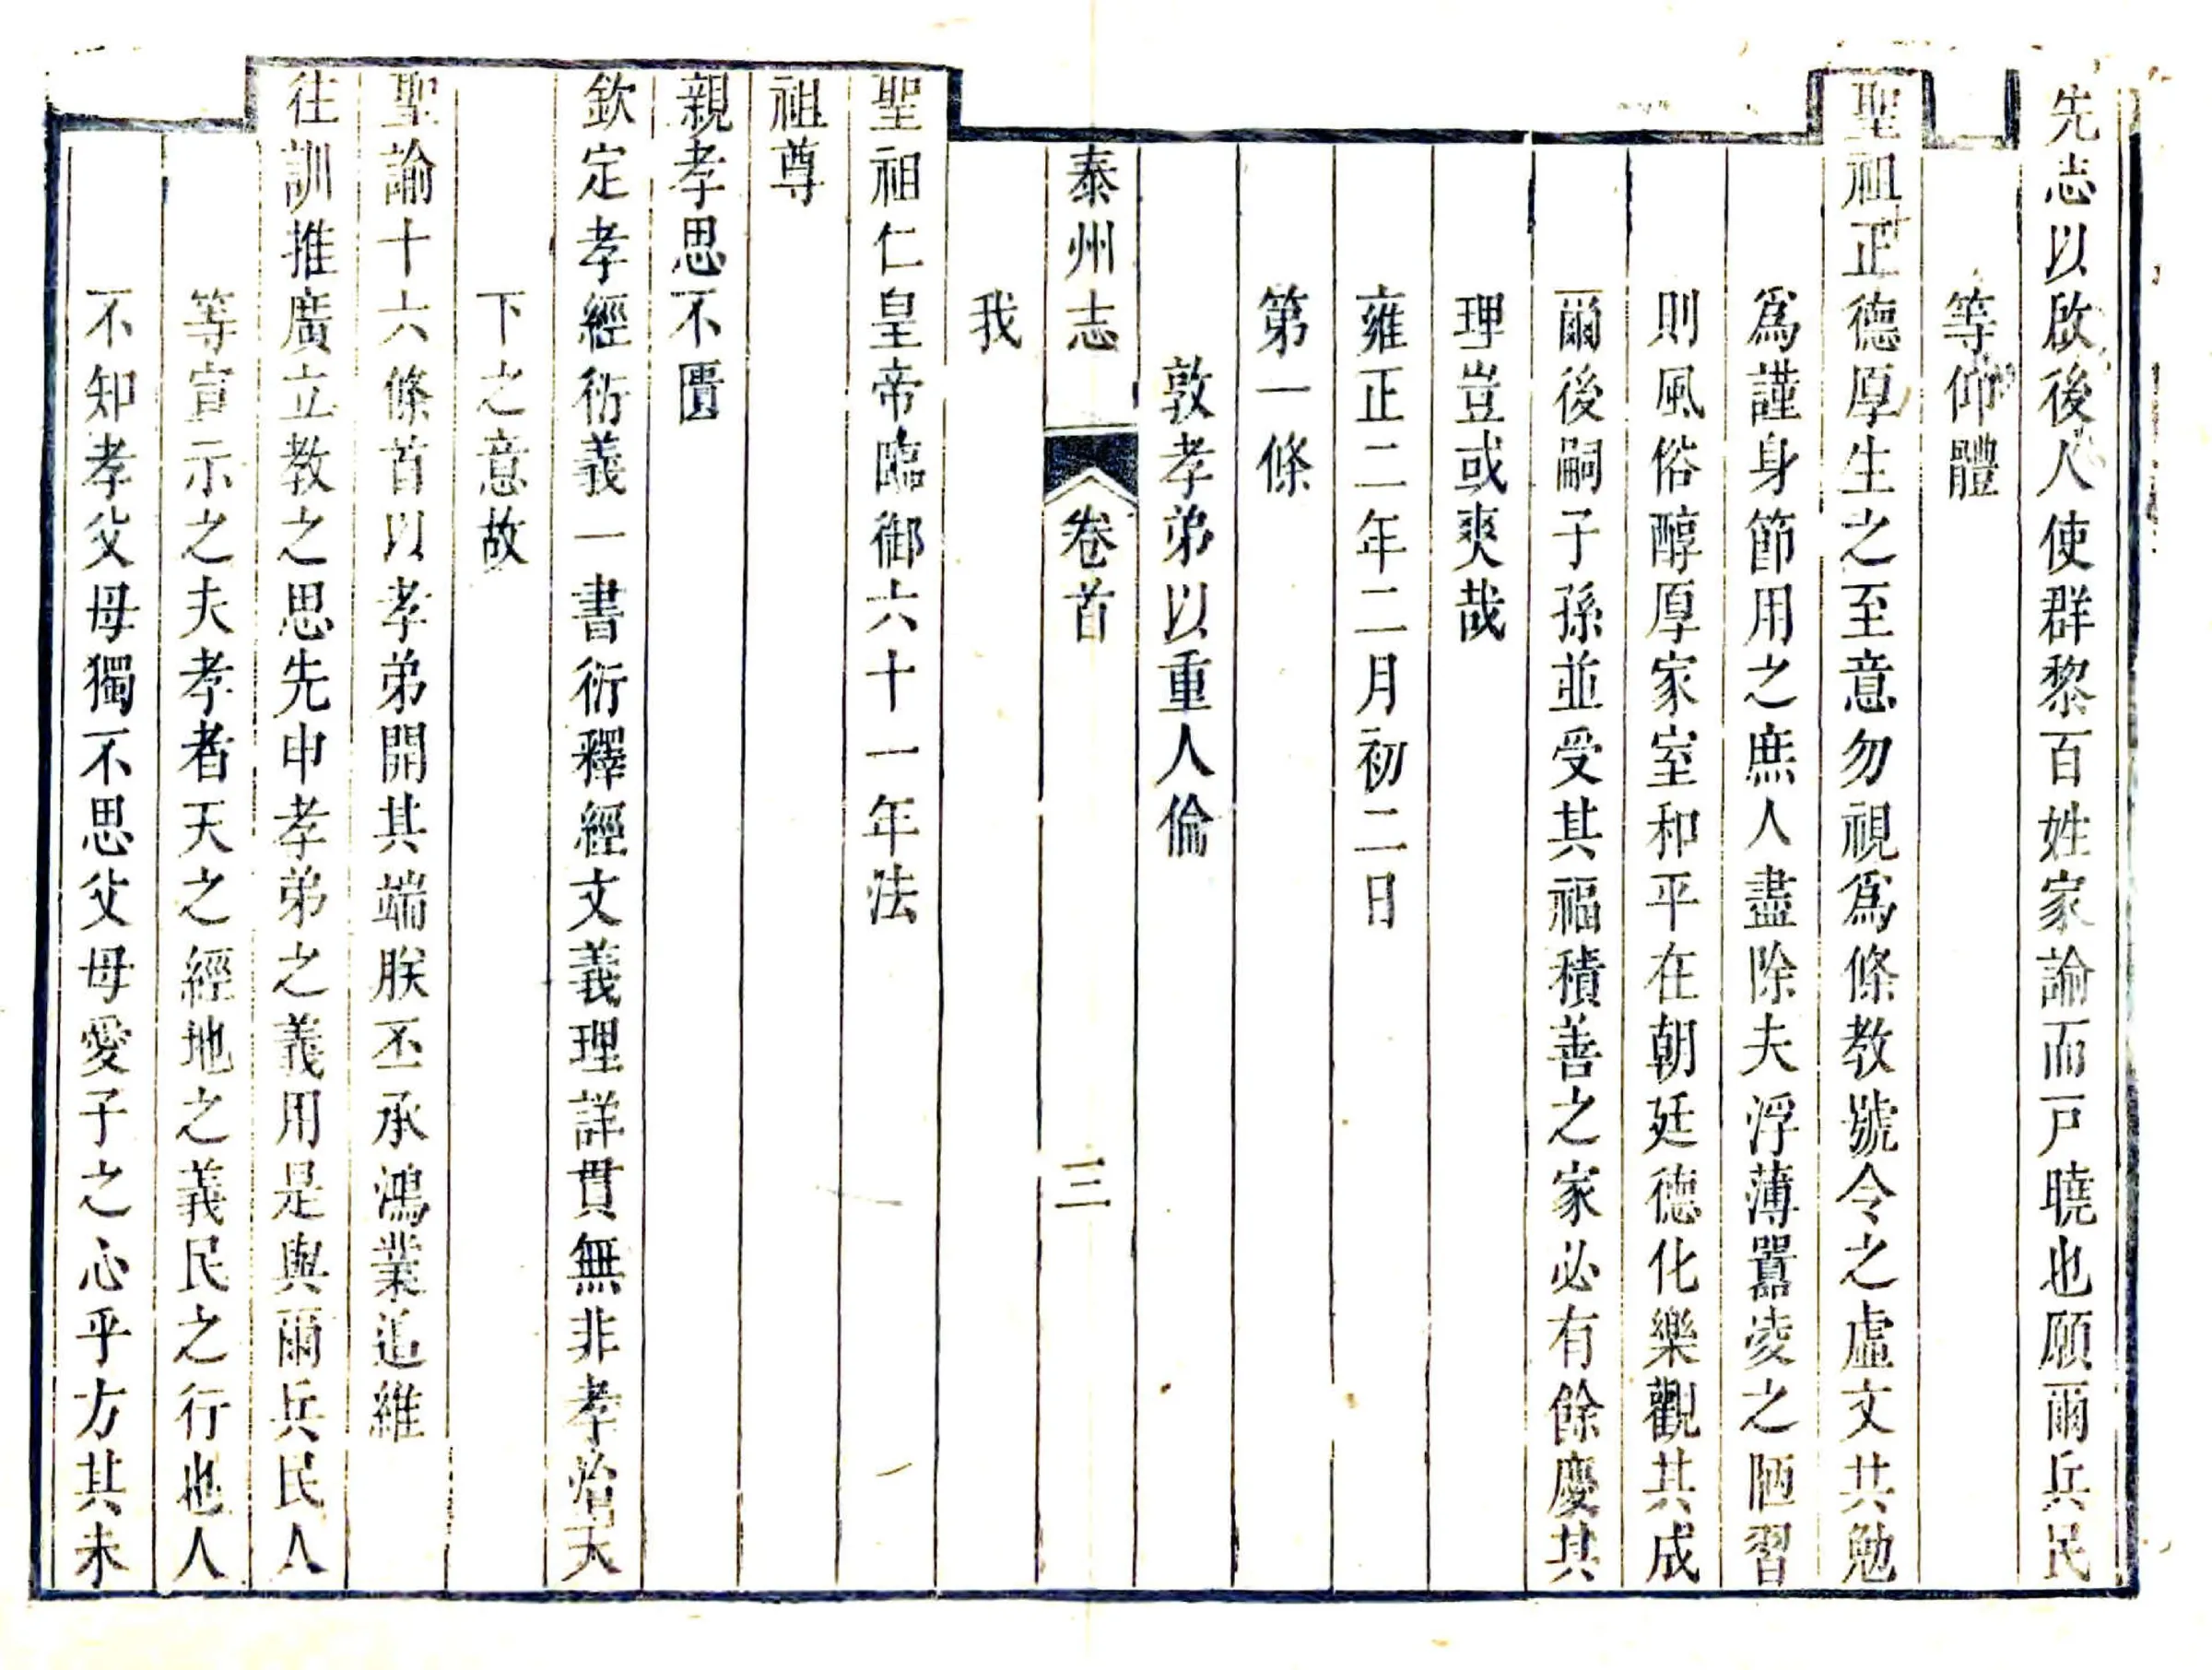 先志以啟後人使群黎百姓家諭而戸曉也願爾兵民
等仰體
聖祖正德厚生之至意勿視爲條教號令之虛文共勉
爲謹身節用之庶人盡除夫浮薄囂凌之陋習
則風俗醇厚家室和平在朝廷德化樂觀其成
爾後嗣子孫並受其福積善之家必有餘慶其
理豈或爽哉
雍正二年二月初二日
第一條
敦孝弟以重人倫
泰州志 卷首 三
我
聖祖仁皇帝臨御六十一年法
祖尊
親孝思不匱
欽定孝經衍義一書衍釋經文義理詳貫無非孝治天
下之意故
聖諭十六條首以孝弟開其端朕丕承鴻業追維
往訓推廣立教之思先申孝弟之義用是與爾兵民人
等宣示之夫孝者天之經地之義民之行也人
不知孝父母獨不思父母愛子之心乎方其未